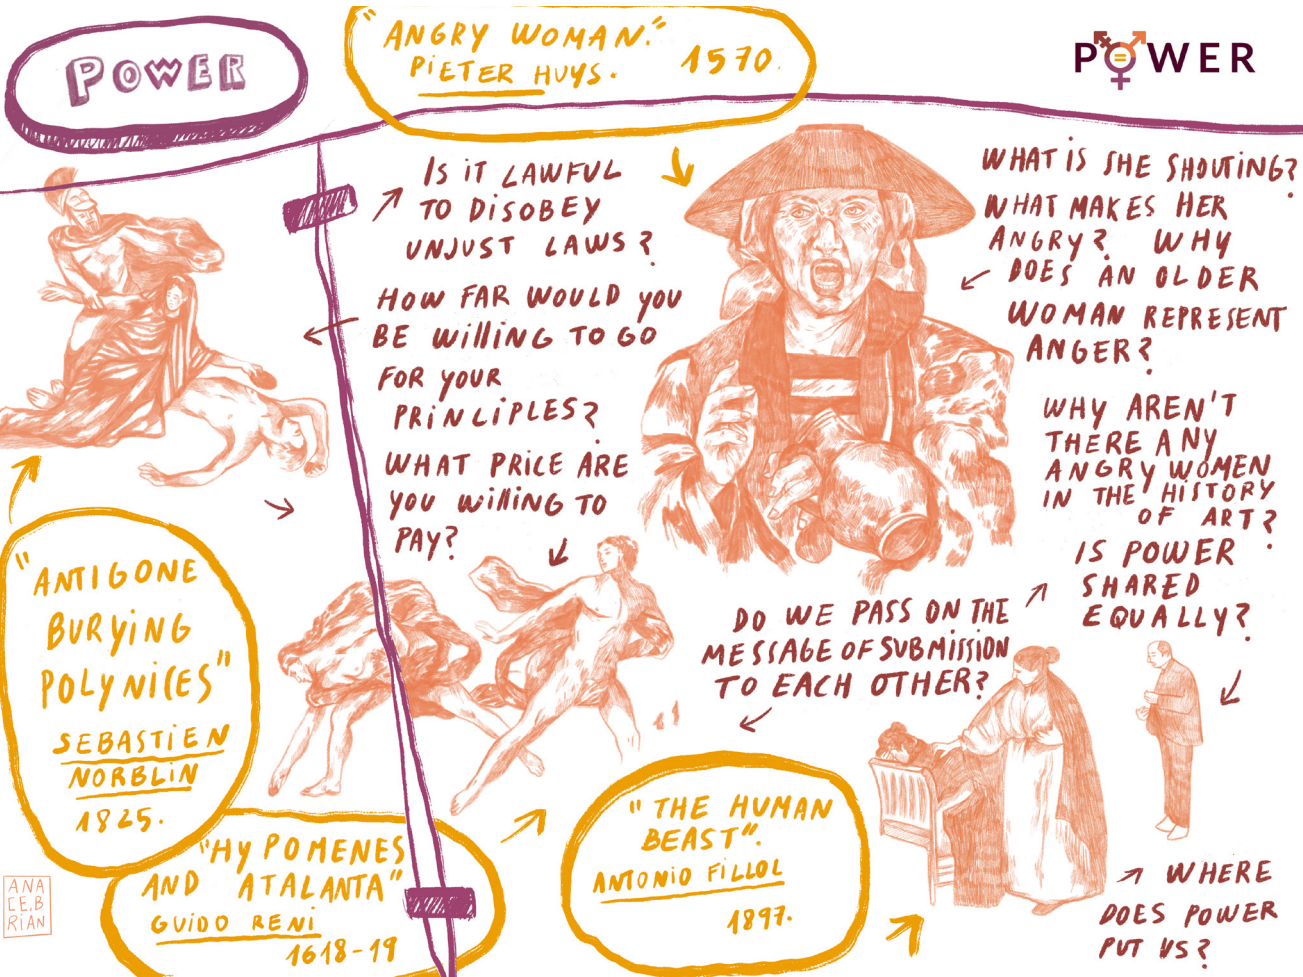 POWER
"ANGRY WOMAN."
PiETER HUYS. 1570.
POWER
IS iT LAWFUL
TO DiSOBEY
UNJUST LAWS?
HOW FAR WOULD YOU
BE WilliNG TO GO
FOR YOUR
PRiNCiPLES?
WHAT PRiCE ARE
YOU WilliNG TO
PAY?
WHAT iS SHE SHOUTiNG?
WHAT MAKES HER
ANGRY? WHY
DOES AN OLDER
WOMAN REPRESENT
ANGER?
WHY AREN'T
THERE ANY
ANGRY WOMEN
IN THE HiSTORY
OF ART?
IS POWER
SHARED
EQUALLY?
DO WE PASS ON THE
MESSAGE OF SUBMiSSiON
TO EACH OTHER?
"ANTIGONE
BURYiNG
POLYNiCES"
SEBASTiEN
NORBLiN
1825.
"HYPOMENES
AND ATALANTA"
GUiDO RENi
1618-19
"THE HUMAN
BEAST".
ANTONiO FiLLOL
1897.
WHERE
DOES POWER
PUT US?
ANA
CEB
RIAN